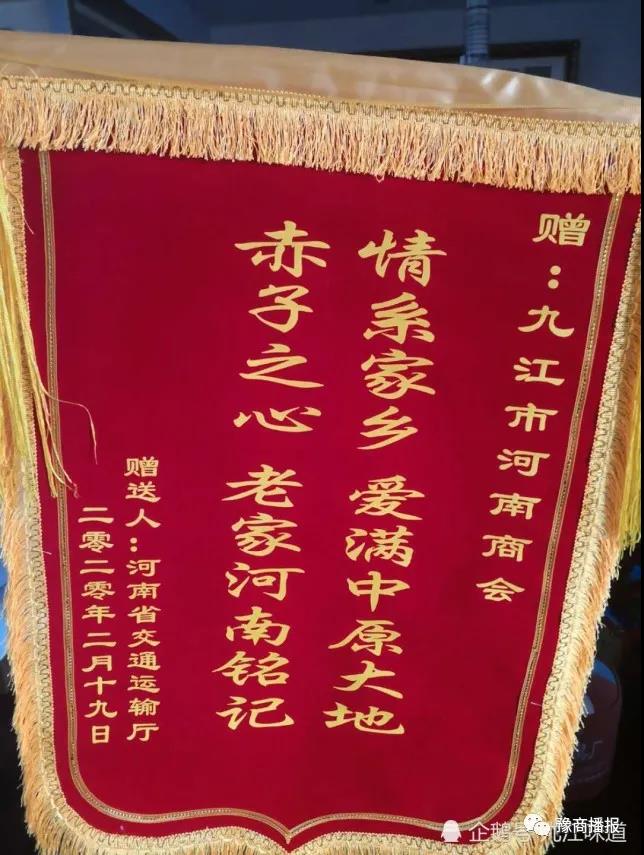 赠：九江市河南商会
情系家乡 爱满中原大地
赤子之心 老家河南铭记
赠送人：河南省交通运输厅
二零二零年二月十九日
豫商播报
企鹅号 九江味道